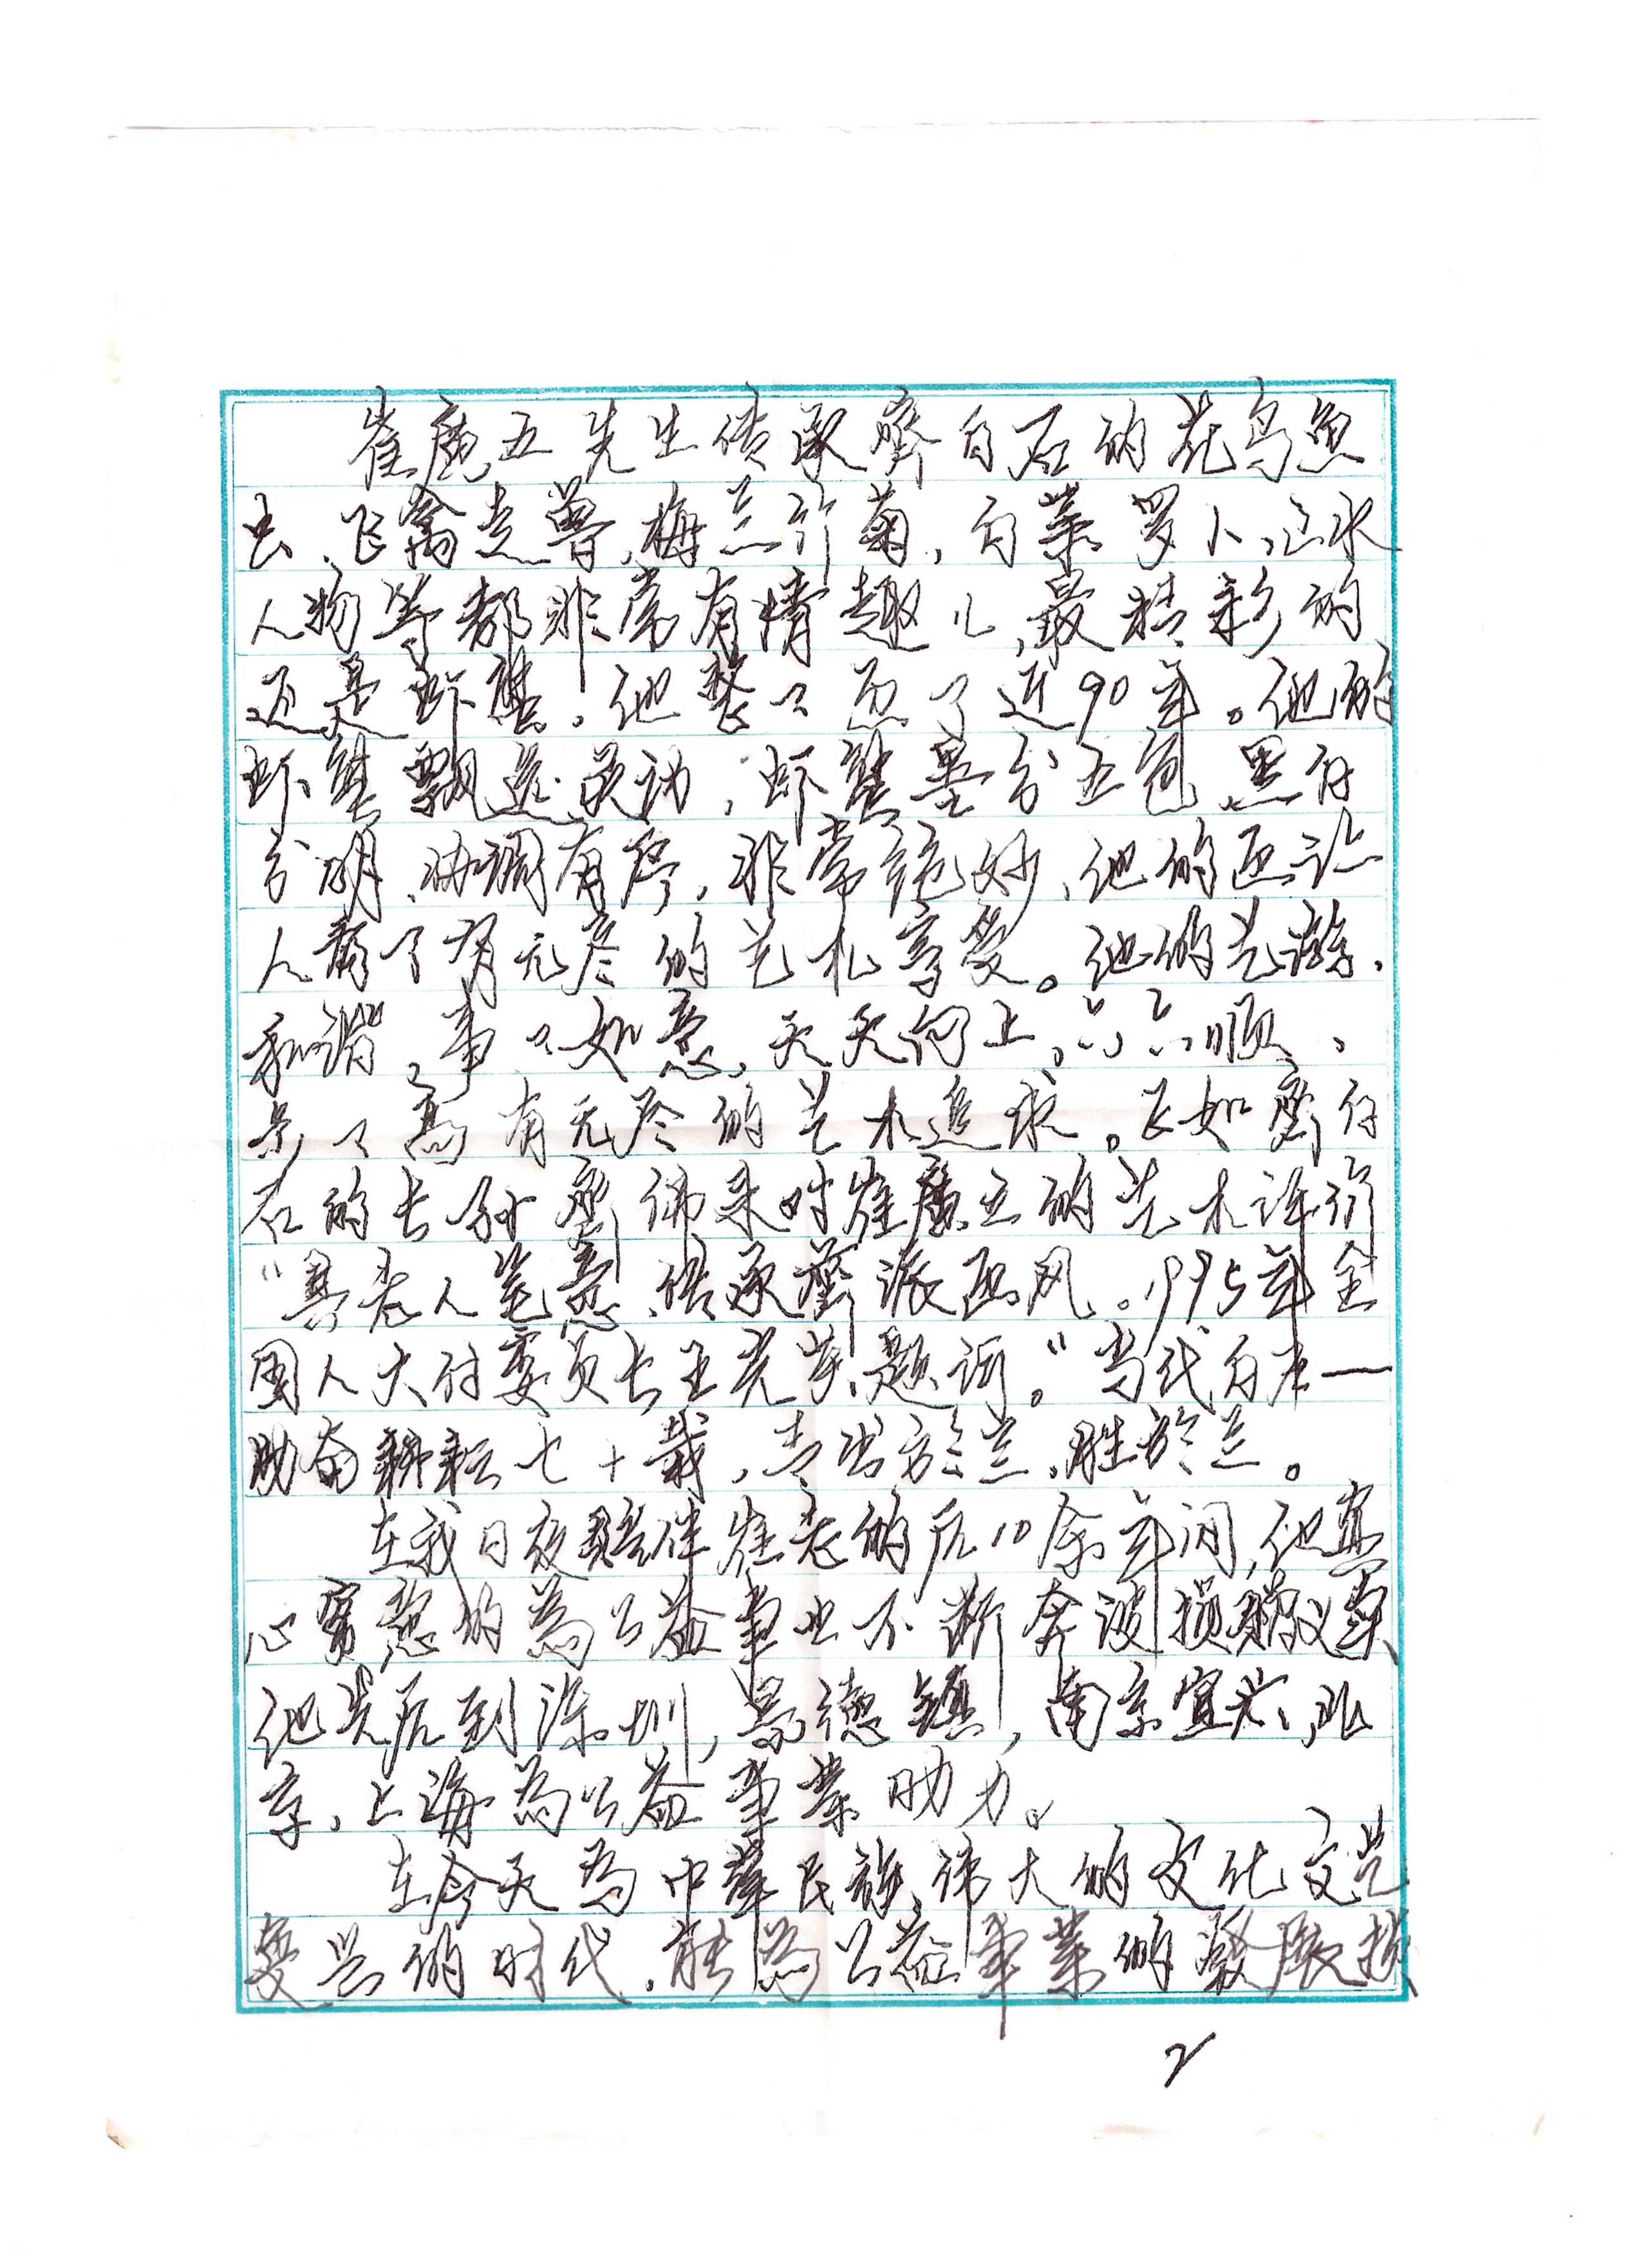 崔广五先生传承齊白石的花鸟鱼
虫、飞禽走兽、梅兰竹菊，白菜罗卜，山水
人物等都非常有情趣儿，最精彩的
还是虾蟹。他整々画了近90年。他的
虾蟹飘逸灵动，虾蟹墨分五色，黑白
分明、协调有序，非常绝妙、他的画让
人看了有无尽的艺术享受。他的艺游、
和谐、事々如意、天天向上、六六顺、
步々高有无尽的艺术追求。正如齊白
石的长孙齊佛来对崔廣五的艺术评价
“具老人笔意、传承齊派画风。1995年全
国人大付委员长王光英题词。“当代白石—
勤奋耕耘七十载，青出於兰、胜於兰。
在我日夜陪伴崔老的后10余年间，他真
心实意的為公益事业不断奔波捐赠义卖
他先后到深圳，景德镇，南京宜兴、北
京、上海為公益事業助力。
在今天為中華民族伟大的文化文艺
复兴的时代、能為公益事業的發展
2